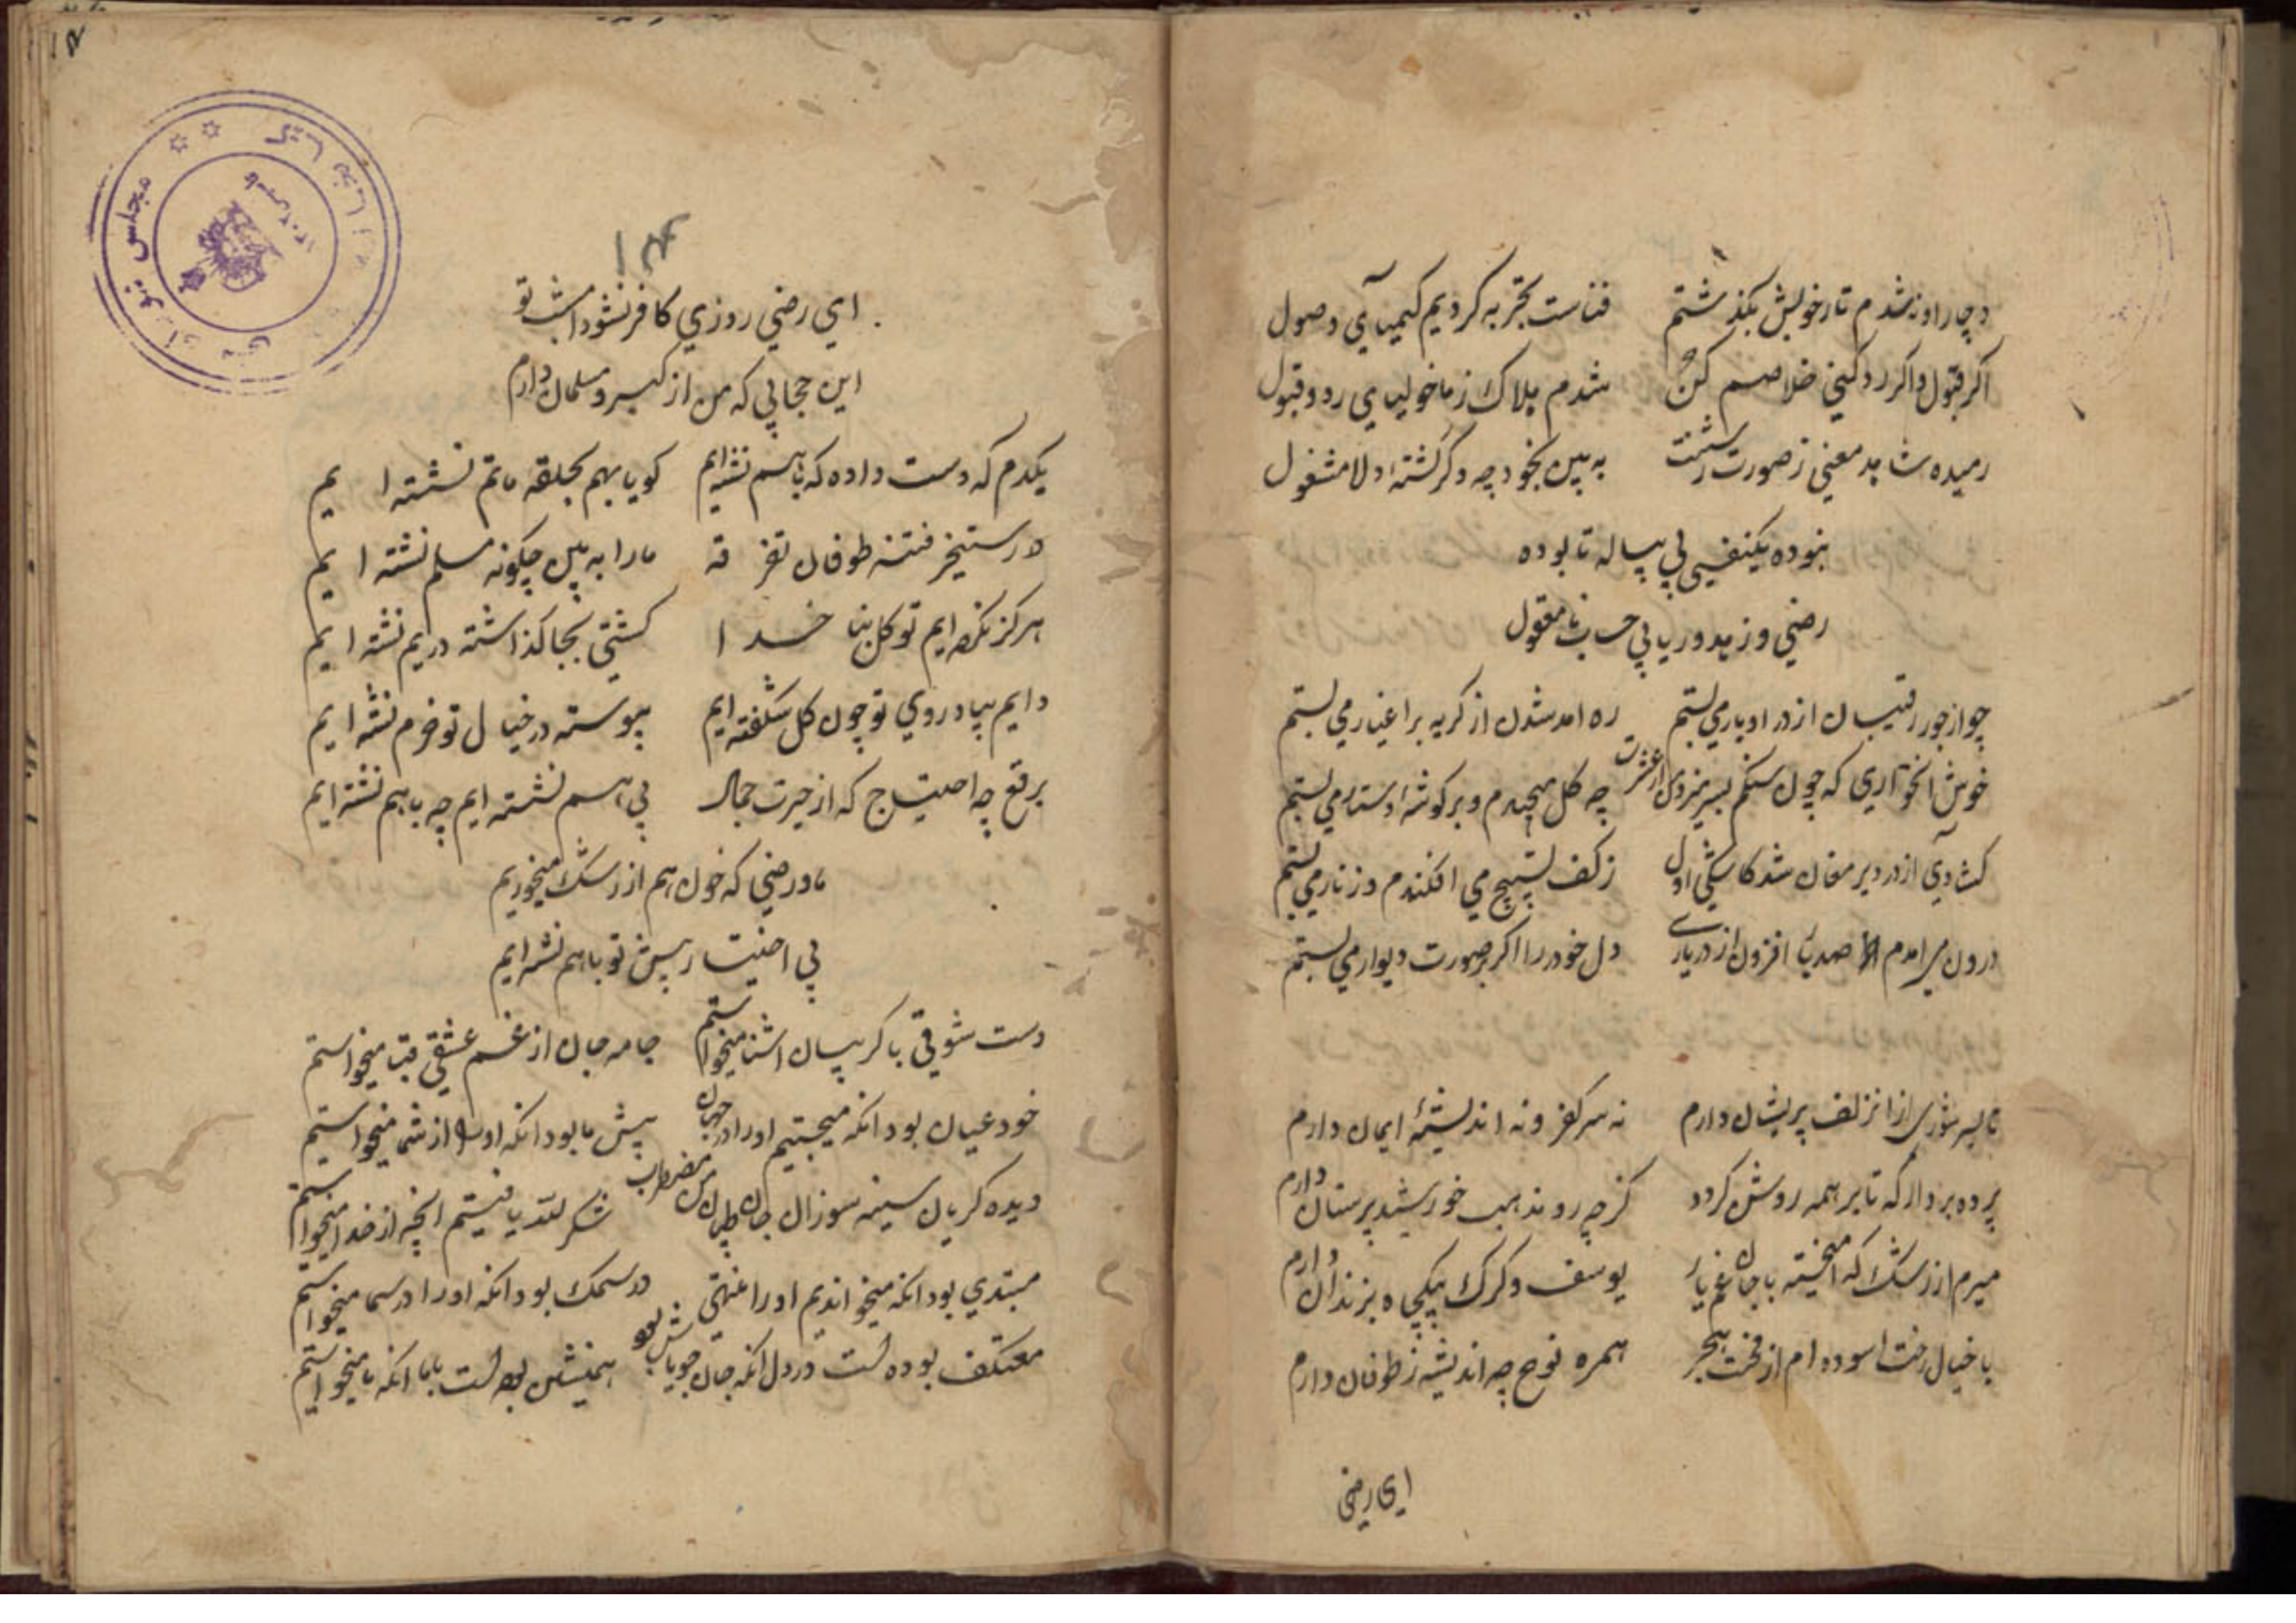 دچار او نشدم تا ز خویش بگذشتم فناست تجربه کردیم کیمیای وصول
اکر قبول و اکر رد کنی خلاصم کن شدم هلاک ز ماخولیای رد و قبول
رمیده شاهد معنی ز صورت زشتت به بین بخود چه دکر کشتهٔ دلا مشغول
نبوده یکنفسی بی پیاله تا بوده
رضی و زهد و ریا بی حساب نامعقول
چو از جور رقیبان از در او بار می بستم ره امد شدن از کریه بر اغیار می بستم
خوش انخواری که چون سنکم بسر میزدی از عشرت چه کل میچیدم و بر کوشهٔ دستار می بستم
کشادی از در دیر مغان شد کاشکی اول ز کف تسبیح می افکندم و زنار می بستم
درون می امدم صد پا افزون از در یاری دل خود را اکر بر صورت دیوار می بستم
تا بسر شوری از ان زلف پریشان دارم نه سر کفر و نه اندیشهٔ ایمان دارم
پرده بردار که تا بر همه روشن کردد کز چه رو مذهب خورشید پرستان دارم
میرم از رشک که امیخته با جان غم یار یوسف و کرک بیکجا ه بزندان دارم
با خیال رخت اسوده ام از محنت هجر همره نوح چه اندیشه ز طوفان دارم
ای رضی
۱۴
ای رضی روزی کافر نشود امت تو
این حجابی که من از کبر و مسلمان دارم
یکدم که دست داده که باهم نشته ایم کویا بهم بحلقه ماتم نشسته ایم
در رستخیز فتنه طوفان تفرقه ما را به بین چکونه مسلم نشته ایم
هرکز نکرده ایم توکل بنا خدا کشتی بجا کذاشته در یم نشته ایم
دایم بیاد روی تو چون کل شکفته ایم پیوسته در خیال تو خرم نشته ایم
برقع چه احتیاج که از حیرت جمال بی هم نشسته ایم چه باهم نشته ایم
ما و رضی که خون هم از رشک میخوریم
بی اختیار پیش تو باهم نشته ایم
دست شوقی با کریبان اشنا میخواستم جامه جان از غم عشقی قبا میخواستم
خود عیان بود انکه میجستیم او را در جهان پیش ما بود انکه او را از شما میخواستیم
دیده کریان سینه سوزان جان طپان من مضطرب شکر لله یافتیم انچه از خدا میخواستم
مبتدی بود انکه میخواندیم او را منتهی در سمک بود انکه او را در سما میخواستم
معتکف بوده است در دل انکه جان جویاش بود همنشین بوده است باما انکه ما میخواستیم